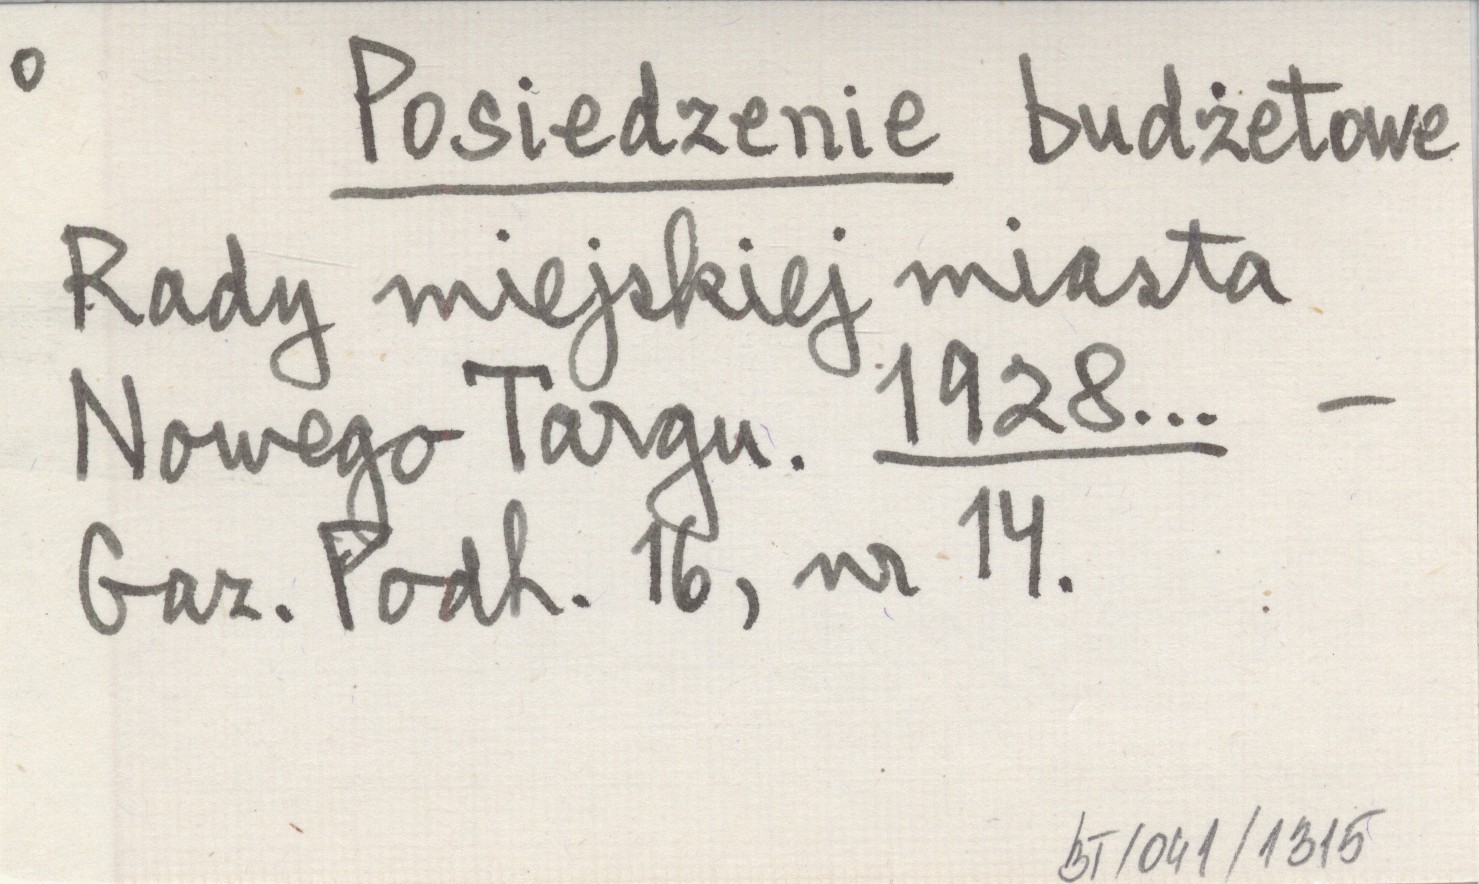 o Posiedzenie budżetowe
Rady miejskiej miasta
Nowego Targu. 1928... –
Gaz. Podh. 16, nr 14.
BT/041/1315